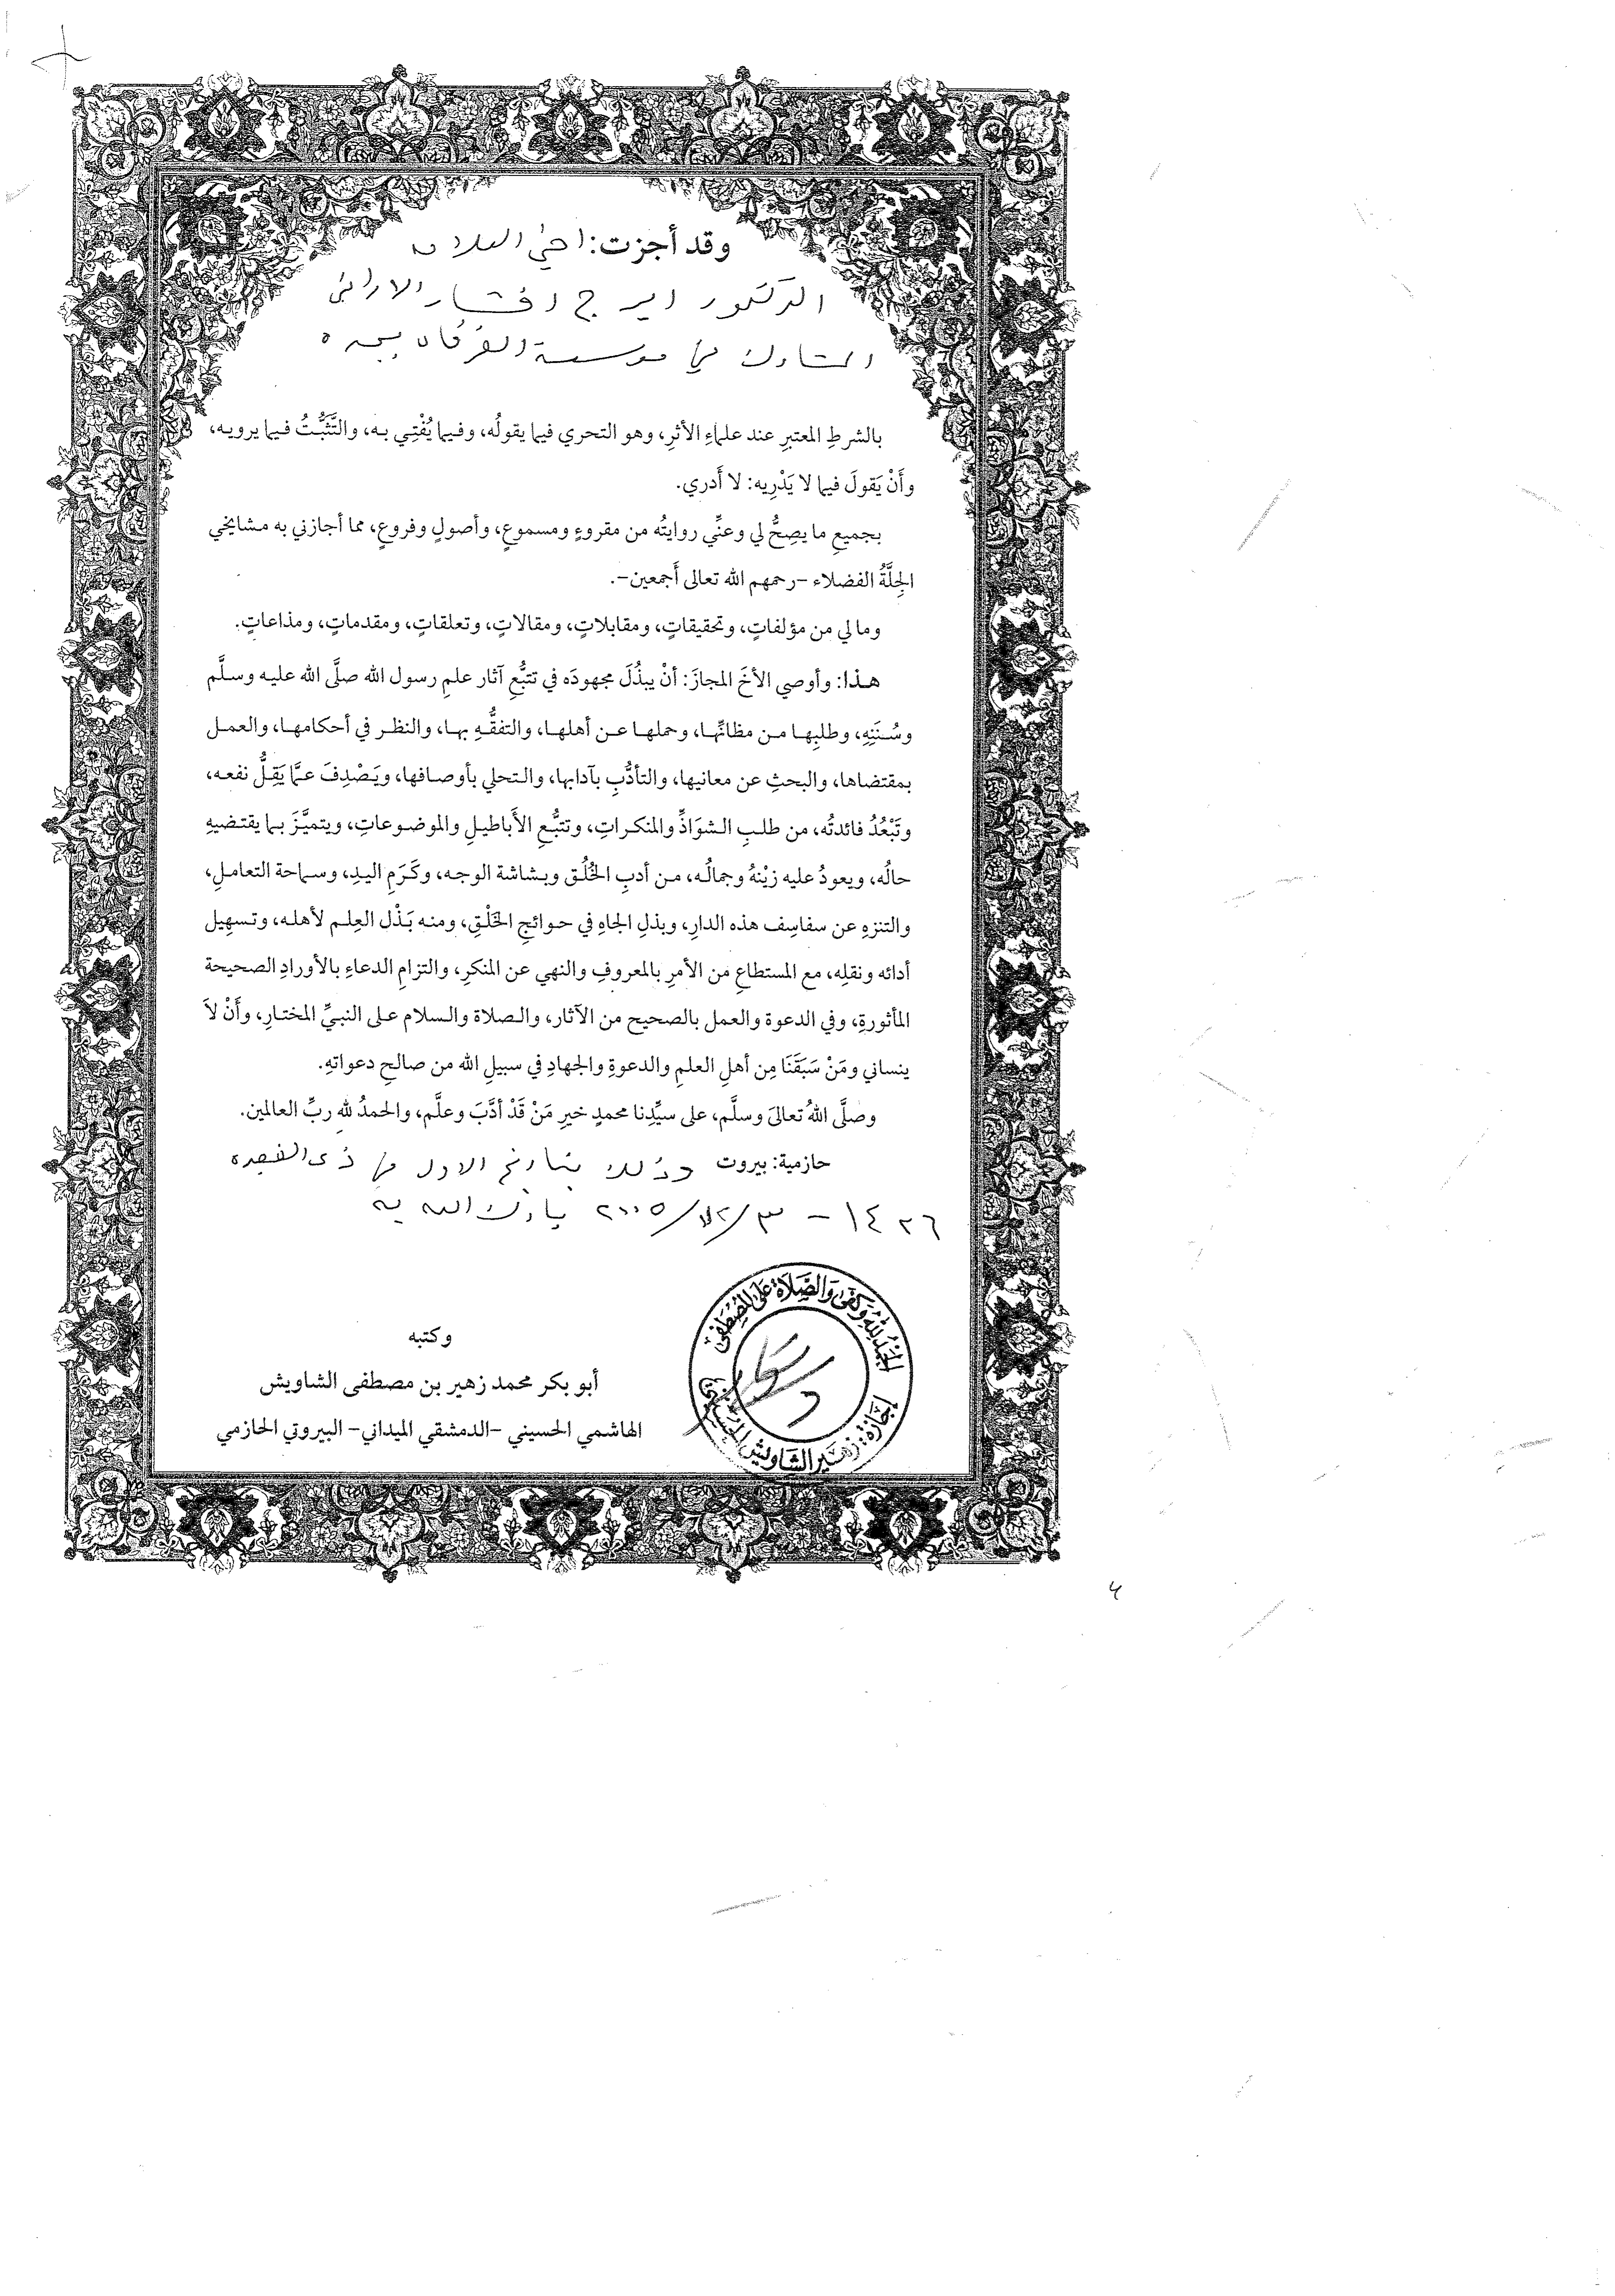 وقد أجزت: اخي العلامة
الدكتور ايرج افشار الايراني
المشارك في مؤسسة الفرقان
بالشرطِ المعتبرِ عند علماءِ الأثرِ، وهو التحري فيما يقولُه، وفيما يُفْتِي به، والتَّثَبُّتُ فيما يرويه،
وأَنْ يَقولَ فيما لا يَدْرِيه: لا أَدري.
بجميعِ ما يصِحُّ لي وعنِّي روايتُه من مقروءٍ ومسموعٍ، وأصولٍ وفروعٍ، مما أجازني به مشايخي
الجِلَّةُ الفضلاء -رحمهم الله تعالى أجمعين-.
وما لي من مؤلفاتٍ، وتحقيقاتٍ، ومقابلاتٍ، ومقالاتٍ، وتعلقاتٍ، ومقدماتٍ، ومذاعاتٍ.
هذا: وأوصي الأخَ المجازَ: أنْ يبذُلَ مجهودَه في تتبُّعِ آثار علمِ رسول الله صلَّى الله عليه وسلَّم
وسُنَنِهِ، وطلبِها من مظانِّها، وحملها عن أهلها، والتفقُّهِ بها، والنظر في أحكامها، والعمل
بمقتضاها، والبحثِ عن معانيها، والتأدُّبِ بآدابها، والتحلي بأوصافها، ويَصْدِفَ عمَّا يَقِلُّ نفعه،
وتَبْعُدُ فائدتُه، من طلبِ الشوَاذِّ والمنكراتِ، وتتبُّعِ الأَباطيلِ والموضوعاتِ، ويتميَّزَ بما يقتضيهِ
حالُه، ويعودُ عليه زيْنهُ وجمالُه، من أدبِ الخُلُق وبشاشة الوجه، وكَرَمِ اليدِ، وسماحة التعاملِ،
والتنزهِ عن سفاسِف هذه الدارِ، وبذلِ الجاهِ في حوائجِ الخَلْقِ، ومنه بَذْل العِلم لأهله، وتسهِيل
أدائه ونقلِه، مع المستطاعِ من الأمرِ بالمعروفِ والنهي عن المنكرِ، والتزامِ الدعاءِ بالأورادِ الصحيحة
المأثورةِ، وفي الدعوة والعمل بالصحيح من الآثار، والصلاة والسلام على النبيِّ المختارِ، وأَنْ لاَ
ينساني ومَنْ سَبَقَنَا مِن أهلِ العلمِ والدعوةِ والجهادِ في سبيلِ الله من صالحِ دعواتهِ.
وصلَّى اللهُ تعالىَ وسلَّم، على سيِّدِنا محمدٍ خيرِ مَنْ قَدْ أدَّبَ وعلَّم، والحمدُ للهِ ربِّ العالمين.
حازمية: بيروت وذلك بتاريخ الاول من ذي القعدة
١٤٢٦ - ٣/١٢/٢٠٠٥
الحَمْدُ للهِ وَكَفَى وَالصَّلَاة عَلَى المُصْطَفَى
إجَازَة: زهَير الشَاويش الحُسَيني
وكتبه
أبو بكر محمد زهير بن مصطفى الشاويش
الهاشمي الحسيني -الدمشقي الميداني- البيروتي الحازمي